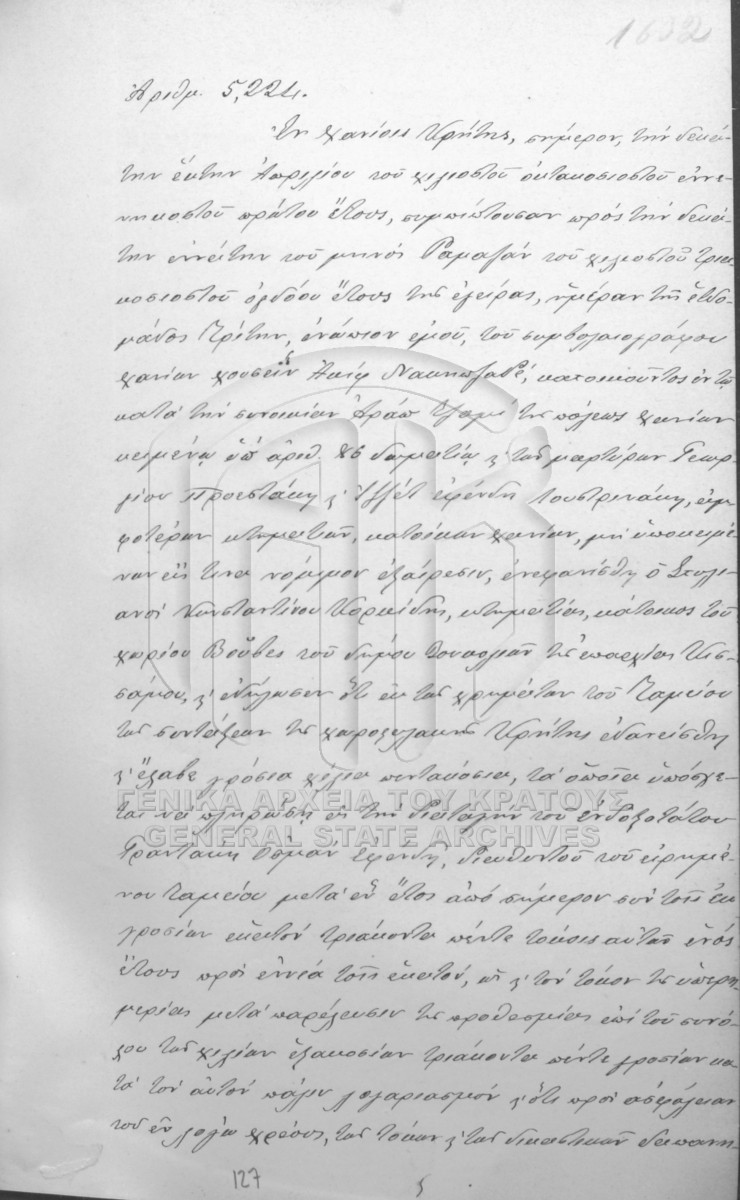 1632
Ἀριθμ. 5,224.
Ἐν Χανίοις Κρήτης, σήμερον, τὴν δεκά-
την ἕκτην Ἀπριλίου τοῦ χιλιοστοῦ ὀκτακοσιοστοῦ ἐννε-
νηκοστοῦ πρώτου ἔτους, συμπίπτουσαν πρὸς τὴν δεκά-
την ἐννάτην τοῦ μηνὸς Ραμαζὰν τοῦ χιλιοστοῦ τρια-
κοσιοστοῦ ὀγδόου ἔτους τῆς ἐγείρας, ἡμέραν τῆς ἑβδο-
μάδος Τρίτην, ἐνώπιον ἐμοῦ, τοῦ συμβολαιογράφου
Χανίων Χουσεῒν Ἀκὶφ, κατοικοῦντος ἐν τῷ
κατὰ τὴν συνοικίαν Ἀρὰπ Τζαμὶ τῆς πόλεως Χανίων
κειμένῳ ὑπ' ἀριθ. δωματίῳ κ' τῶν μαρτύρων Γεωρ-
γίου Προεστάκη κ' Ἰζζὲτ ἐφένδη Λουστρινάκη, ἀμ-
φοτέρων κτηματιῶν, κατοίκων Χανίων, μὴ ὑποκειμέ-
νων εἴς τινα νόμιμον ἐξαίρεσιν, ἐνεφανίσθη ὁ Στυλι-
ανὸς Κωνσταντίνου, κτηματίας, κάτοικος τοῦ
χωρίου Βοῦβες τοῦ δήμου τῆς ἐπαρχίας Κισ-
σάμου, κ' ἐδήλωσεν ὅτι ἐκ τῶν χρημάτων τοῦ Ταμείου
τῶν συντάξεων τῆς χωροφυλακῆς Κρήτης ἐδανείσθη
κ' ἔλαβε γρόσια χίλια πεντακόσια, τὰ ὁποῖα ὑπόσχε-
ται νὰ πληρώσῃ εἰς τὴν διαταγὴν τοῦ ἐνδοξοτάτου
Γραντάκη Ὀσμὰν Ἐφένδη, διευθυντοῦ τοῦ εἰρημέ-
νου ταμείου μετὰ ἓν ἔτος ἀπὸ σήμερον σὺν τοῖς ἐκ
γροσίων ἑκατὸν τριάκοντα πέντε τόκοις αὐτῶν ἑνὸς
ἔτους πρὸς ἐννέα τοῖς ἑκατόν, ὡς κ' τὸν τόκον τῆς ὑπερη-
μερίας μετὰ παρέλευσιν τῆς προθεσμίας ἐπὶ τοῦ συνό-
λου τῶν χιλίων ἑξακοσίων τριάκοντα πέντε γροσίων κα-
τὰ τὸν αὐτὸν πάλιν λογαριασμόν κ' ὅτι πρὸς ἀσφάλειαν
τοῦ ἐν λόγῳ χρέους, τῶν τόκων κ' τῶν δικαστικῶν δαπανη-
127
ΓΕΝΙΚΑ ΑΡΧΕΙΑ ΤΟΥ ΚΡΑΤΟΥΣ
GENERAL STATE ARCHIVES